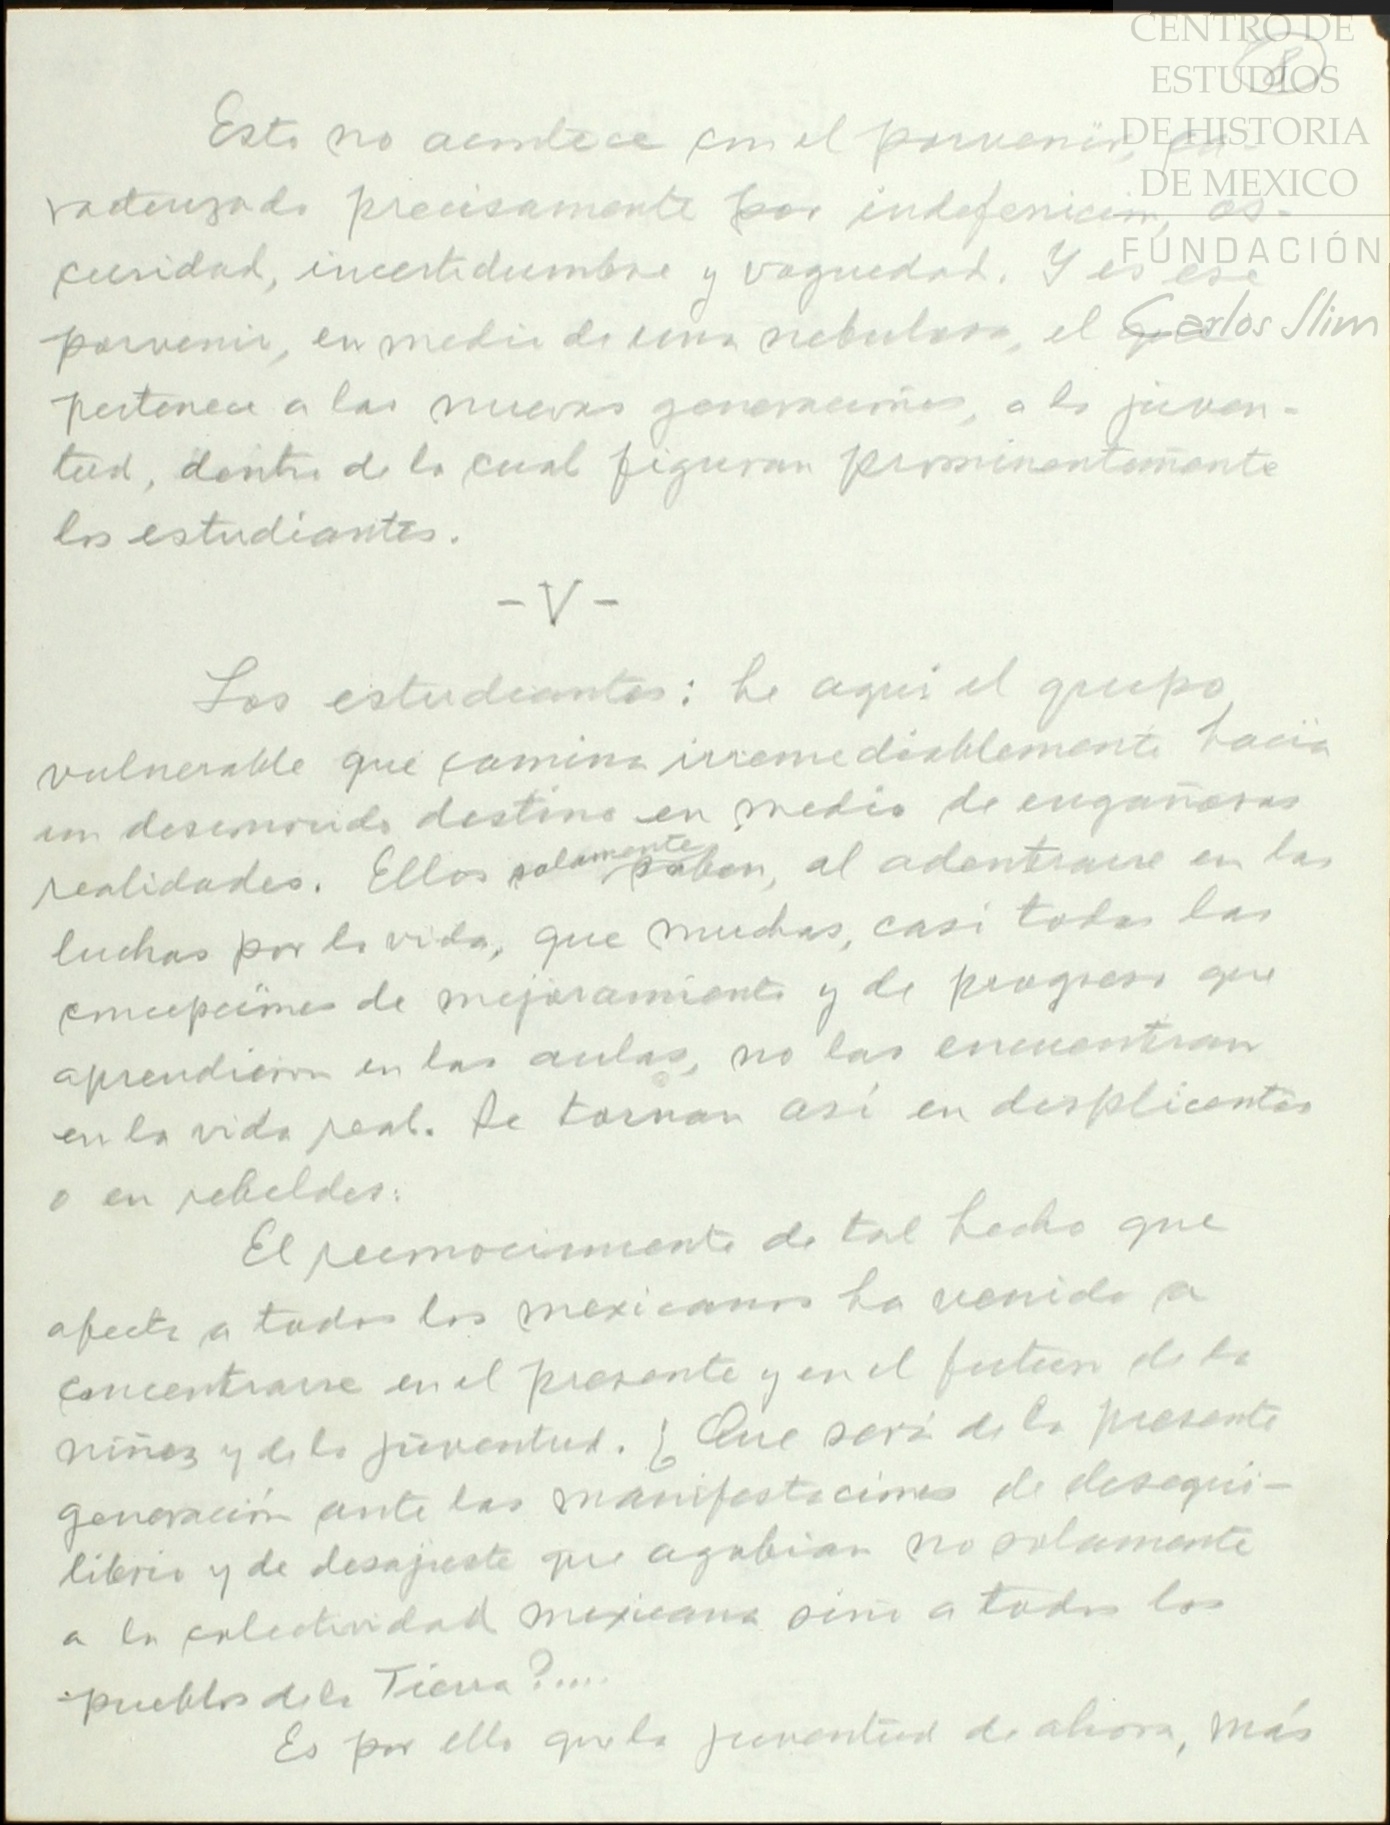 CENTRO DE
ESTUDIOS
DE HISTORIA
DE MEXICO
FUNDACIÓN
Carlos Slim
8
Esto no acontece con el porvenir, ca-
racterizado precisamente por indefinición, os-
curidad, incertidumbre y vaguedad. Y es ese
porvenir, en medio de una nebulosa, el que
pertenece a las nuevas generaciones, a la juven-
tud, dentro de la cual figuran prominentemente
los estudiantes.
- V -
Los estudiantes: he aqui el grupo
vulnerable que camina irremediablemente hacia
un desconocido destino en medio de engañosas
realidades. Ellos solamente saben, al adentrarse en las
luchas por la vida, que muchas, casi todas las
concepciones de mejoramiento y de progreso que
aprendieron en las aulas, no las encuentran
en la vida real. Se tornan así en desplicentes
o en rebeldes.
El reconocimiento de tal hecho que
afecta a todos los mexicanos ha venido a
concentrarse en el presente y en el futuro de la
niñez y de la juventud. ¿Que será de la presente
generación ante las manifestaciones de desequi-
librio y de desajuste que agobian no solamente
a la colectividad mexicana sino a todos los
pueblos de la Tierra?.....
Es por ello que la juventud de ahora, más